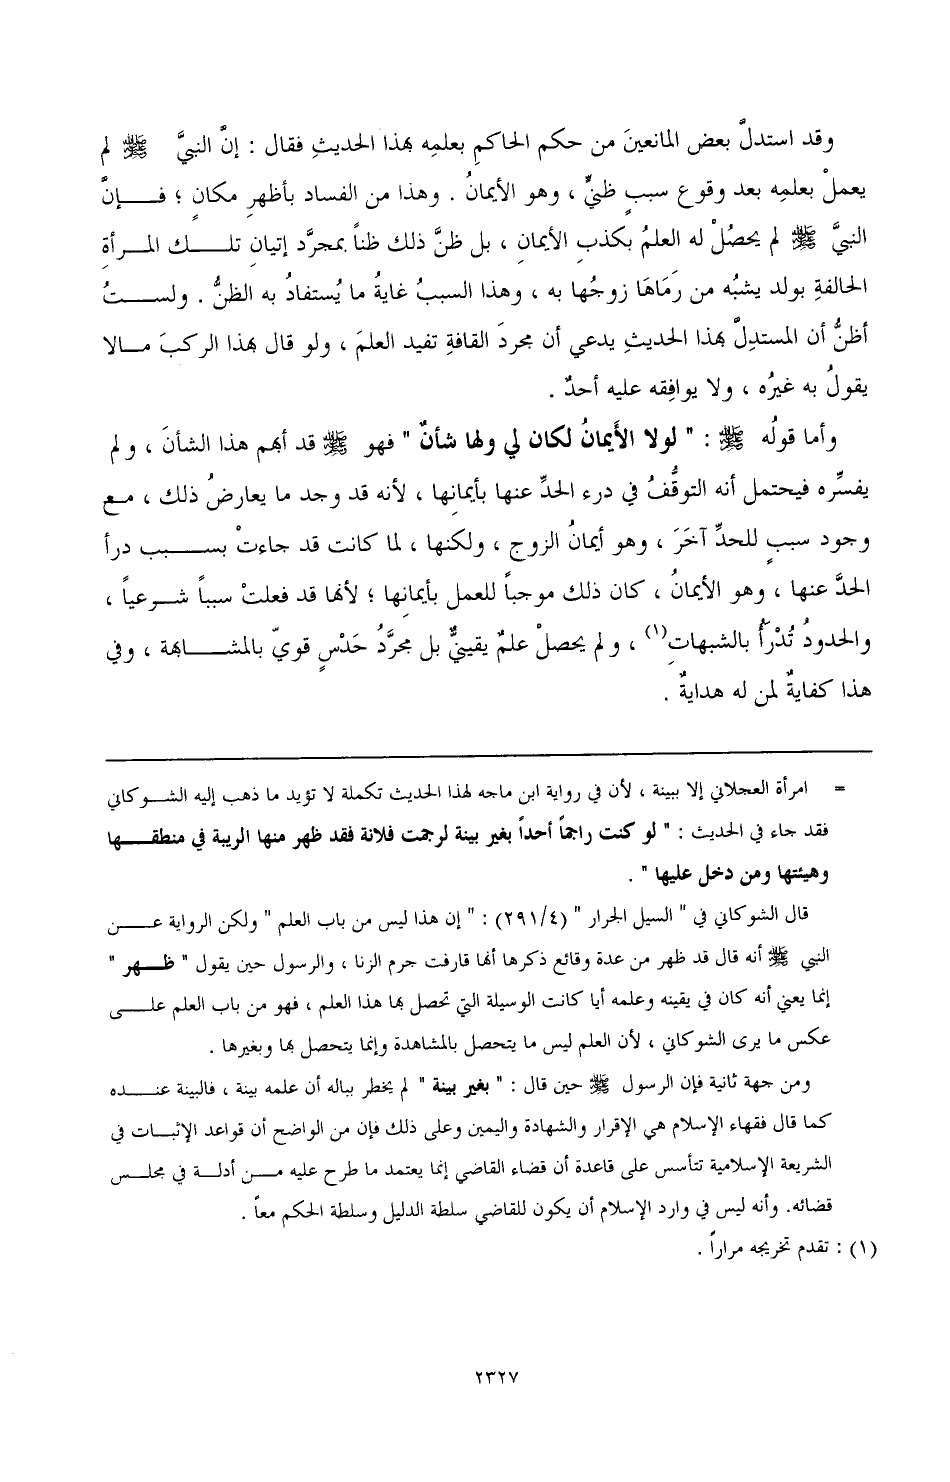 وقد استدلَّ بعض المانعينَ من حكم الحاكمِ بعلمِه بهذا الحديثِ فقال : إنَّ النبيَّ ﷺ لم
يعملْ بعلمِه بعد وقوع سببٍ ظنيٍّ ، وهو الأيمانُ . وهذا من الفساد بأظهرِ مكانٍ ؛ فإنَّ
النبيَّ ﷺ لم يحصُلْ له العلمُ بكذبِ الأيمانِ ، بل ظنَّ ذلك ظناً بمجرَّد إتيان تلك المرأةِ
الحالفةِ بولد يشبُه من رَمَاهَا زوجُها به ، وهذا السببُ غايةُ ما يُستفادُ به الظنُّ . ولستُ
أظنُّ أن المستدِلَّ بهذا الحديثِ يدعي أن مجردَ القافةِ تفيد العلمَ ، ولو قال بهذا الركبَ مالا
يقولُ به غيرُه ، ولا يوافِقه عليه أحدٌ .
وأما قولُه ﷺ : " لولا الأَيمانُ لكان لي ولها شأنٌ " فهو ﷺ قد أبهم هذا الشأنَ ، ولم
يفسِّره فيحتمل أنه التوقُّفُ في درء الحدِّ عنها بأيمانِها ، لأنه قد وجد ما يعارضُ ذلك ، مع
وجود سببٍ للحدِّ آخَرَ ، وهو أيمانُ الزوج ، ولكنها ، لما كانت قد جاءتْ بسبب درأ
الحدَّ عنها ، وهو الأيمانُ ، كان ذلك موجباً للعمل بأيمانها ؛ لأنها قد فعلتْ سبباً شرعياً ،
والحدودُ تُدْرَأُ بالشبهاتِ(١) ، ولم يحصلْ علمٌ يقينيٌّ بل مجرَّدُ حَدْسٍ قويّ بالمشابهة ، وفي
هذا كفايةٌ لمن له هدايةٌ .
= امرأة العجلاني إلا ببينة ، لأن في رواية ابن ماجه لهذا الحديث تكملة لا تؤيد ما ذهب إليه الشوكاني
فقد جاء في الحديث : " لو كنت راجماً أحداً بغير بينة لرجمت فلانة فقد ظهر منها الريبة في منطقها
وهيئتها ومن دخل عليها " .
قال الشوكاني في " السيل الجرار " (٢٩١/٤) : " إن هذا ليس من باب العلم " ولكن الرواية عن
النبي ﷺ أنه قال قد ظهر من عدة وقائع ذكرها أنها قارفت جرم الزنا ، والرسول حين يقول " ظهر "
إنما يعني أنه كان في يقينه وعلمه أيا كانت الوسيلة التي تحصل بها هذا العلم ، فهو من باب العلم على
عكس ما يرى الشوكاني ، لأن العلم ليس ما يتحصل بالمشاهدة وإنما يتحصل بها وبغيرها .
ومن جهة ثانية فإن الرسول ﷺ حين قال : " بغير بينة " لم يخطر بباله أن علمه بينة ، فالبينة عنده
كما قال فقهاء الإسلام هي الإقرار والشهادة واليمين وعلى ذلك فإن من الواضح أن قواعد الإثبات في
الشريعة الإسلامية تتأسس على قاعدة أن قضاء القاضي إنما يعتمد ما طرح عليه من أدلة في مجلس
قضائه. وأنه ليس في وارد الإسلام أن يكون للقاضي سلطة الدليل وسلطة الحكم معاً .
(١) : تقدم تخريجه مراراً .
٢٣٢٧